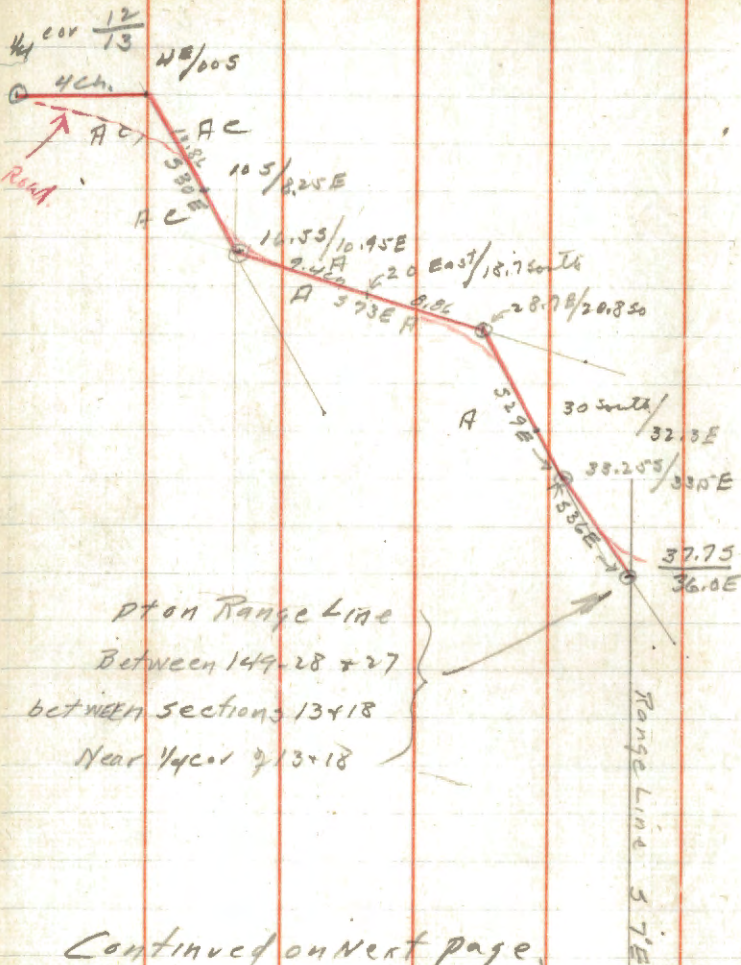 1/4 cor 12/13
4E/00S
4 ch.
AC
AC
Road
S30E
10S/8.25E
AC
16.5S/10.95E
A
20 East/18.7 South
A S73E A
28.7E/20.8 So
S29E
A
30 South/32.3E
33.25S/
S36E
37.7S/36.0E
pt on Range Line
Between 149-28 + 27
between sections 13+18
Near 1/4 cor of 13+18
Range Line S 7'E
Continued on Next page.